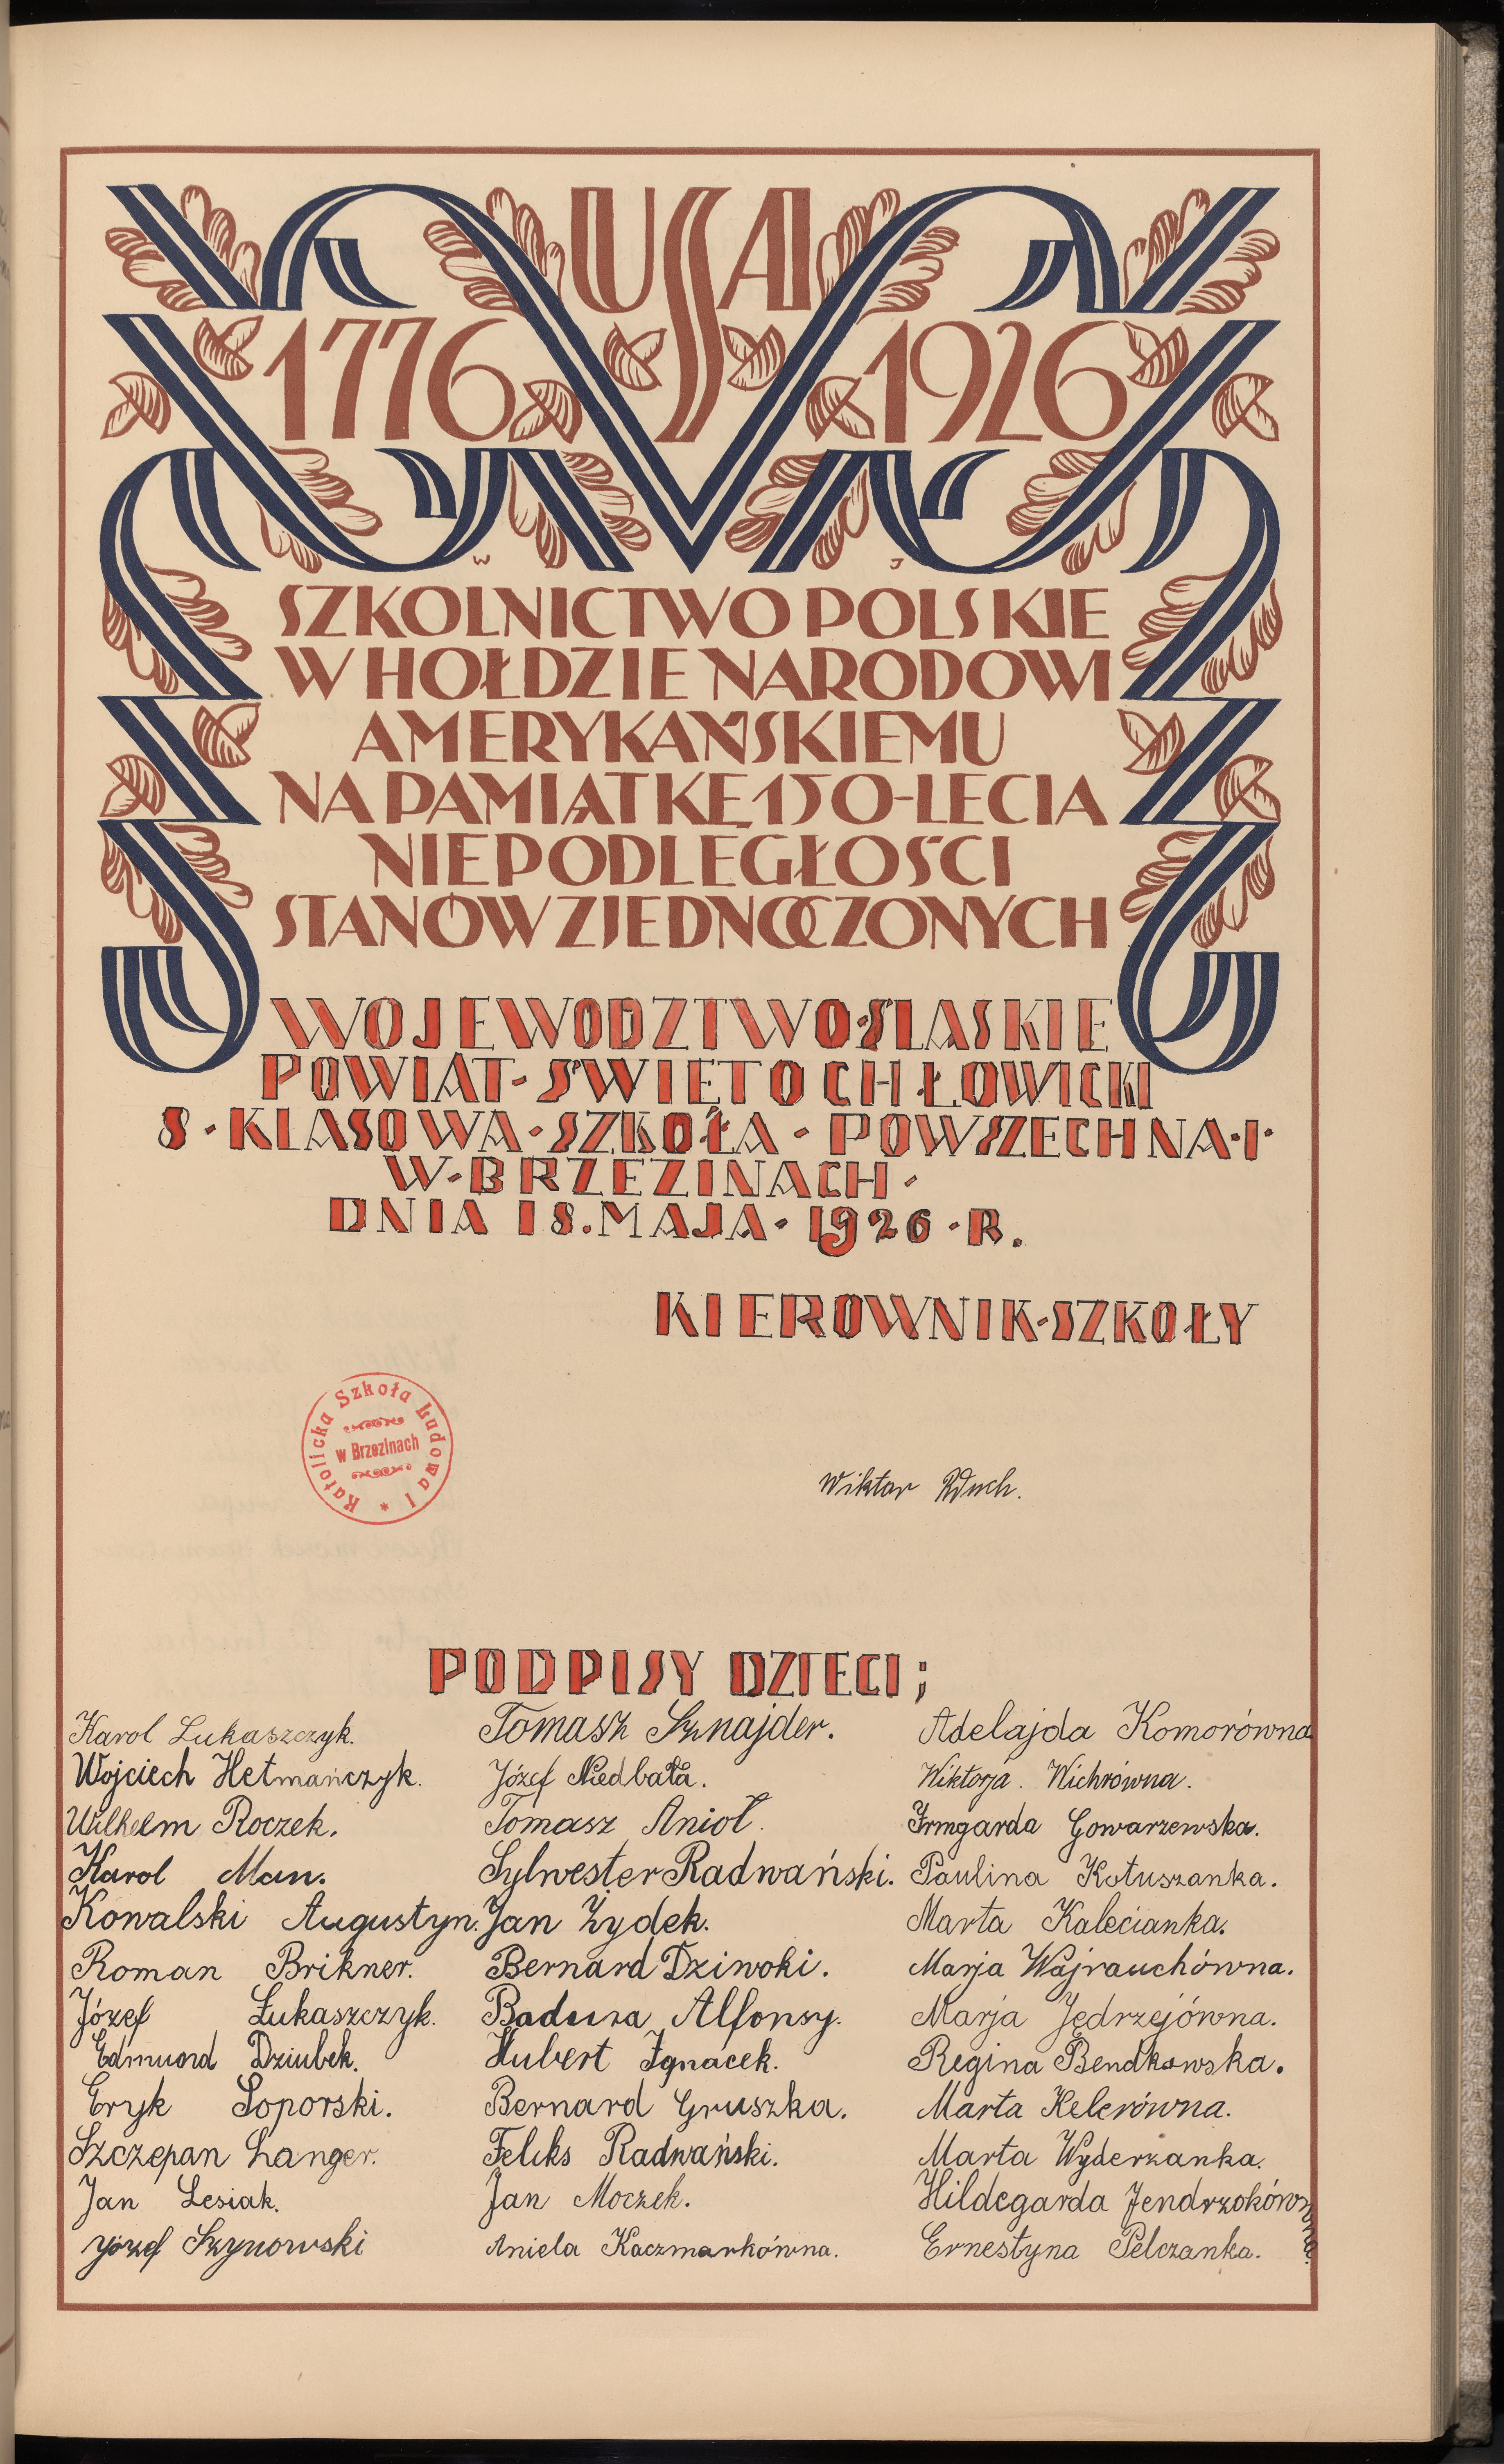 USA
1776 1926
W J
SZKOLNICTWO POLSKIE
W HOŁDZIE NARODOWI
AMERYKAŃSKIEMU
NA PAMIĄTKĘ 150-LECIA
NIEPODLEGŁOŚCI
STANÓW ZJEDNOCZONYCH
WOJEWODZTWO·SLASKIE
POWIAT-SWIETOCHŁOWICKI
8·KLASOWA-SZKOŁA-POWSZECHNA·I·
W-BRZEZINACH·
DNIA 18.MAJA-1926·R.
KIEROWNIK-SZKOŁY
Katolicka Szkoła Ludowa I
w Brzezinach
Wiktor
PODPISY DZIECI;
Karol Lukaszczyk.
Wojciech Hetmańczyk.
Wilhelm Roczek.
Karol Man.
Kowalski Augustyn.
Roman Brikner.
Józef Łukaszczyk.
Edmuord Dziubek.
Eryk Soporski.
Szczepan Langer.
Jan Lesiak.
Józef Szynowski
Tomasz Sznajder.
Józef Niedbała.
Tomasz Anioł.
Sylwester Radwański.
Jan Żydek.
Bernard Dziwoki.
Badura Alfonsy.
Hubert Ignacek.
Bernard Gruszka.
Feliks Radwański.
Jan Moczek.
Aniela Kaczmarkówna.
Adelajda Komorówna
Wiktorja. Wichrówna.
Irmgarda Gowarzewska.
Paulina Kotuszanka.
Marta Kalecianka.
Marja Wajrauchówna.
Marja Jędrzejówna.
Regina Bendkowska.
Marta Kelerówna.
Marta Wyderzanka.
Hildegarda Jendrzokówna.
Ernestyna Pelczanka.